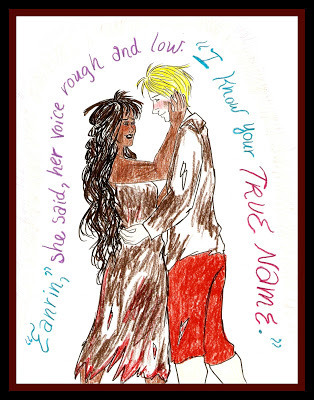 "Eanrin," she said, her voice rough and low. "I know your TRUE NAME."